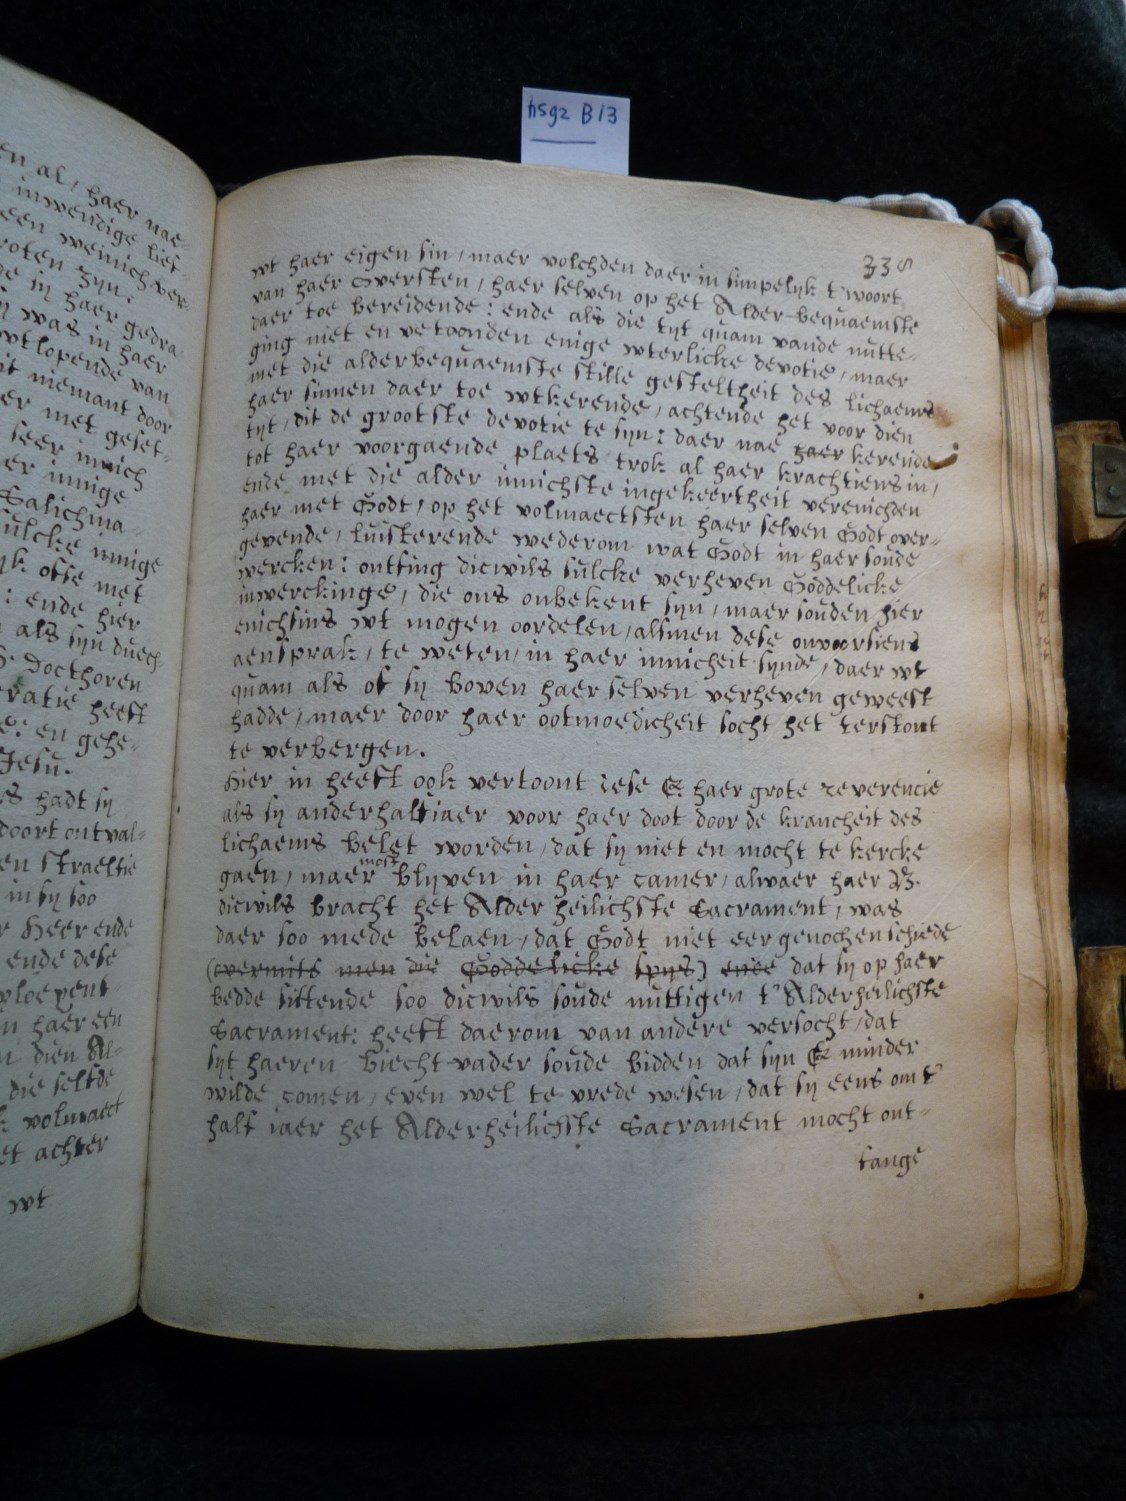 hsg2 B13
en al, haer nae-
inwendige lief-
een weinich ver-
roten zyn:
de in haer gedra-
y was in haer
wtlopende van
it niemant door
er met geset-
seer innich
er innige
Salichma-
sulcke innige
yk ofse met
: ende hier
als syn duech-
S. Docthoren
ratie heeft
e: en gehe-
Jesu.
s hadt sy
doort ontval-
en straeltie
in sy soo
r Heer ende
ende dese
vloeyent
in haer een
n dien Al-
die selfde
volmaect
et achter
wt
338
wt haer eigen sin, maer volchden daer in simpelyk t'woort
van haer Oversten, haer selven op het Alder-bequaemste
daer toe bereidende: ende als die tyt quam vande nutte-
ging niet en vetoonden enige wterlicke devotie, maer
met die alderbequaemste stille gesteltheit des lichaems
haer sinnen daer toe wtkerende, achtende het voor dien
tyt, dit de grootste devotie te syn: daer nae haer kerende
tot haer voorgaende plaets trok al haer krachtiens in,
ende met die alder innichste ingekeertheit verenichden
haer met Godt, op het volmaectsten haer selven Godt over-
gevende, luisterende wederom wat Godt in haer soude
wercken: ontfing dicwils sulcke verheven Goddelicke
inwerckinge, die ons onbekent syn, maer souden hier
enichsins wt mogen oordelen, alsmen dese onvoorsiens
aensprak, te weten, in haer innicheit synde, daer wt
quam als of sy boven haer selven verheven geweest
hadde, maer door haer ootmoedicheit socht het terstont
te verbergen.
Hier in heeft ook vertoont dese E. haer grote reverencie
als sy anderhalf iaer voor haer doot door de krancheit des
lichaems belet worden, dat sy niet en mocht te kercke
most
gaen, maer blyven in haer camer, alwaer haer
dicwils bracht het Alder heilichste Sacrament, was
daer soo mede belaen, dat Godt niet eer genoch en schiede
(overmits men die Goddelicke spys) ende dat sy op haer
bedde sittende soo dicwils soude nuttigen t'Alderheilichste
Sacrament: heeft daerom van andere versocht, dat
syt haeren Biecht-vader soude bidden dat syn E minder
wilde comen, even wel te vrede wesen, dat sy eens om t'
half iaer het Alderheilichste Sacrament mocht ont-
fange